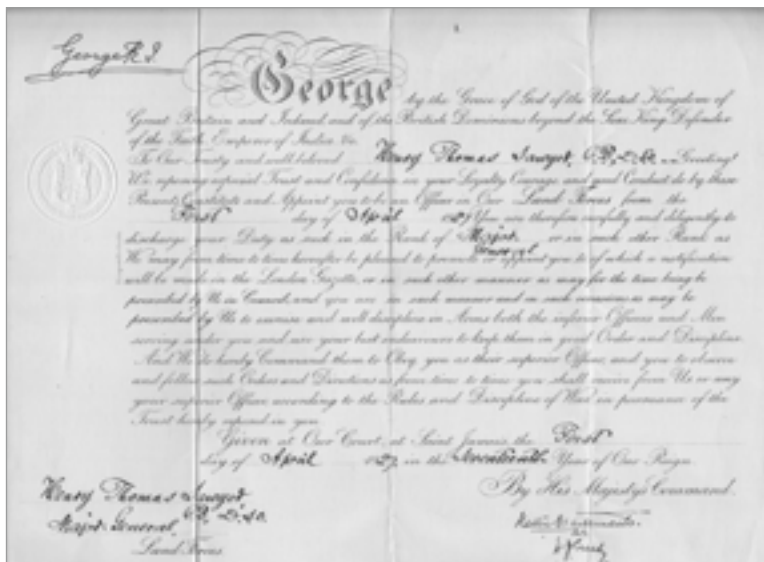 George R. I.
George by the Grace of God of the United Kingdom of
Great Britain and Ireland and of the British Dominions beyond the Seas King Defender
of the Faith, Emperor of India &c.
To Our Trusty and well beloved Henry Thomas Sawyer, C.B., D.S.O. Greeting!
We reposing especial Trust and Confidence in your Loyalty Courage and good Conduct do by these
Presents Constitute and Appoint you to be an Officer in Our Land Forces from the
First day of April You are therefore carefully and diligently to
discharge your Duty as such in the Rank of Major General or in such other Rank as
We may from time to time hereafter be pleased to promote or appoint you to of which a notification
will be made in the London Gazette, or in such other manner as may for the time being be
prescribed by Us in Council, and you are in such manner and on such occasions as may be
prescribed by Us to exercise and well discipline in Arms both the inferior Officers and Men
serving under you and use your best endeavours to keep them in good Order and Discipline.
And We do hereby Command them to Obey you as their superior Officer, and you to observe
and follow such Orders and Directions as from time to time you shall receive from Us or any
your superior Officer according to the Rules and Discipline of War in pursuance of the
Trust hereby reposed in you.
Given at Our Court, at Saint James's, the First
day of April 1927 in the Seventeenth Year of Our Reign
By His Majesty's Command.
Henry Thomas Sawyer
C.B., D.S.O.
Major General,
Land Forces